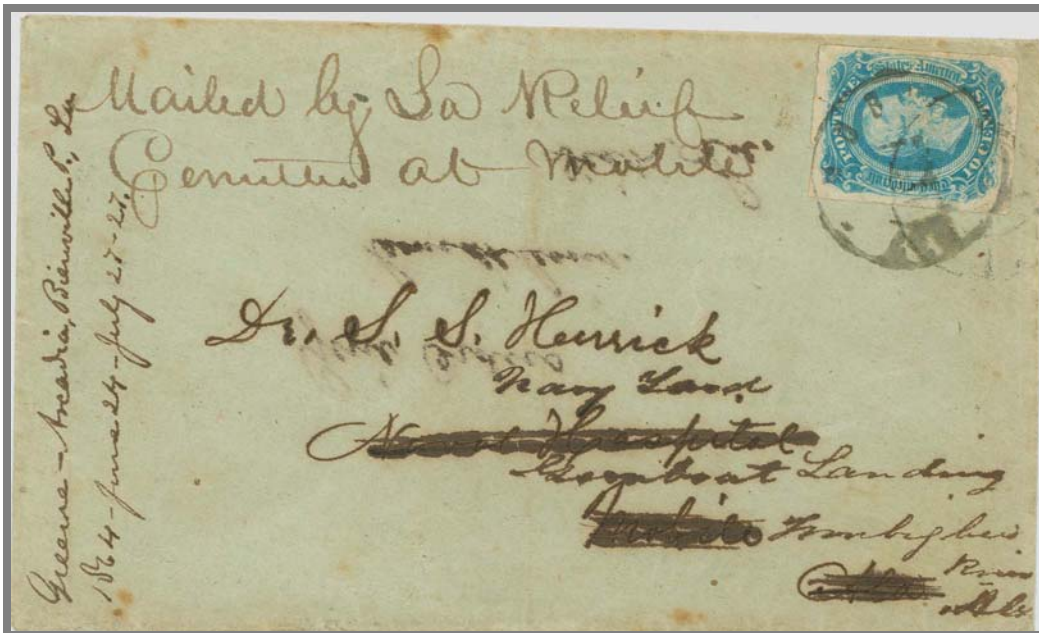 Mailed by La Relief
Committee at Mobile
Dr. S. S. Herrick
Navy Yard
Naval Hospital
Gunboat Landing
Mobile Tombigbee
River
Ala
Greene - Arcadia, Bienville P., La
1864 - June 24 - July 27 - 27.
POSTAGE
States America
10 CENTS